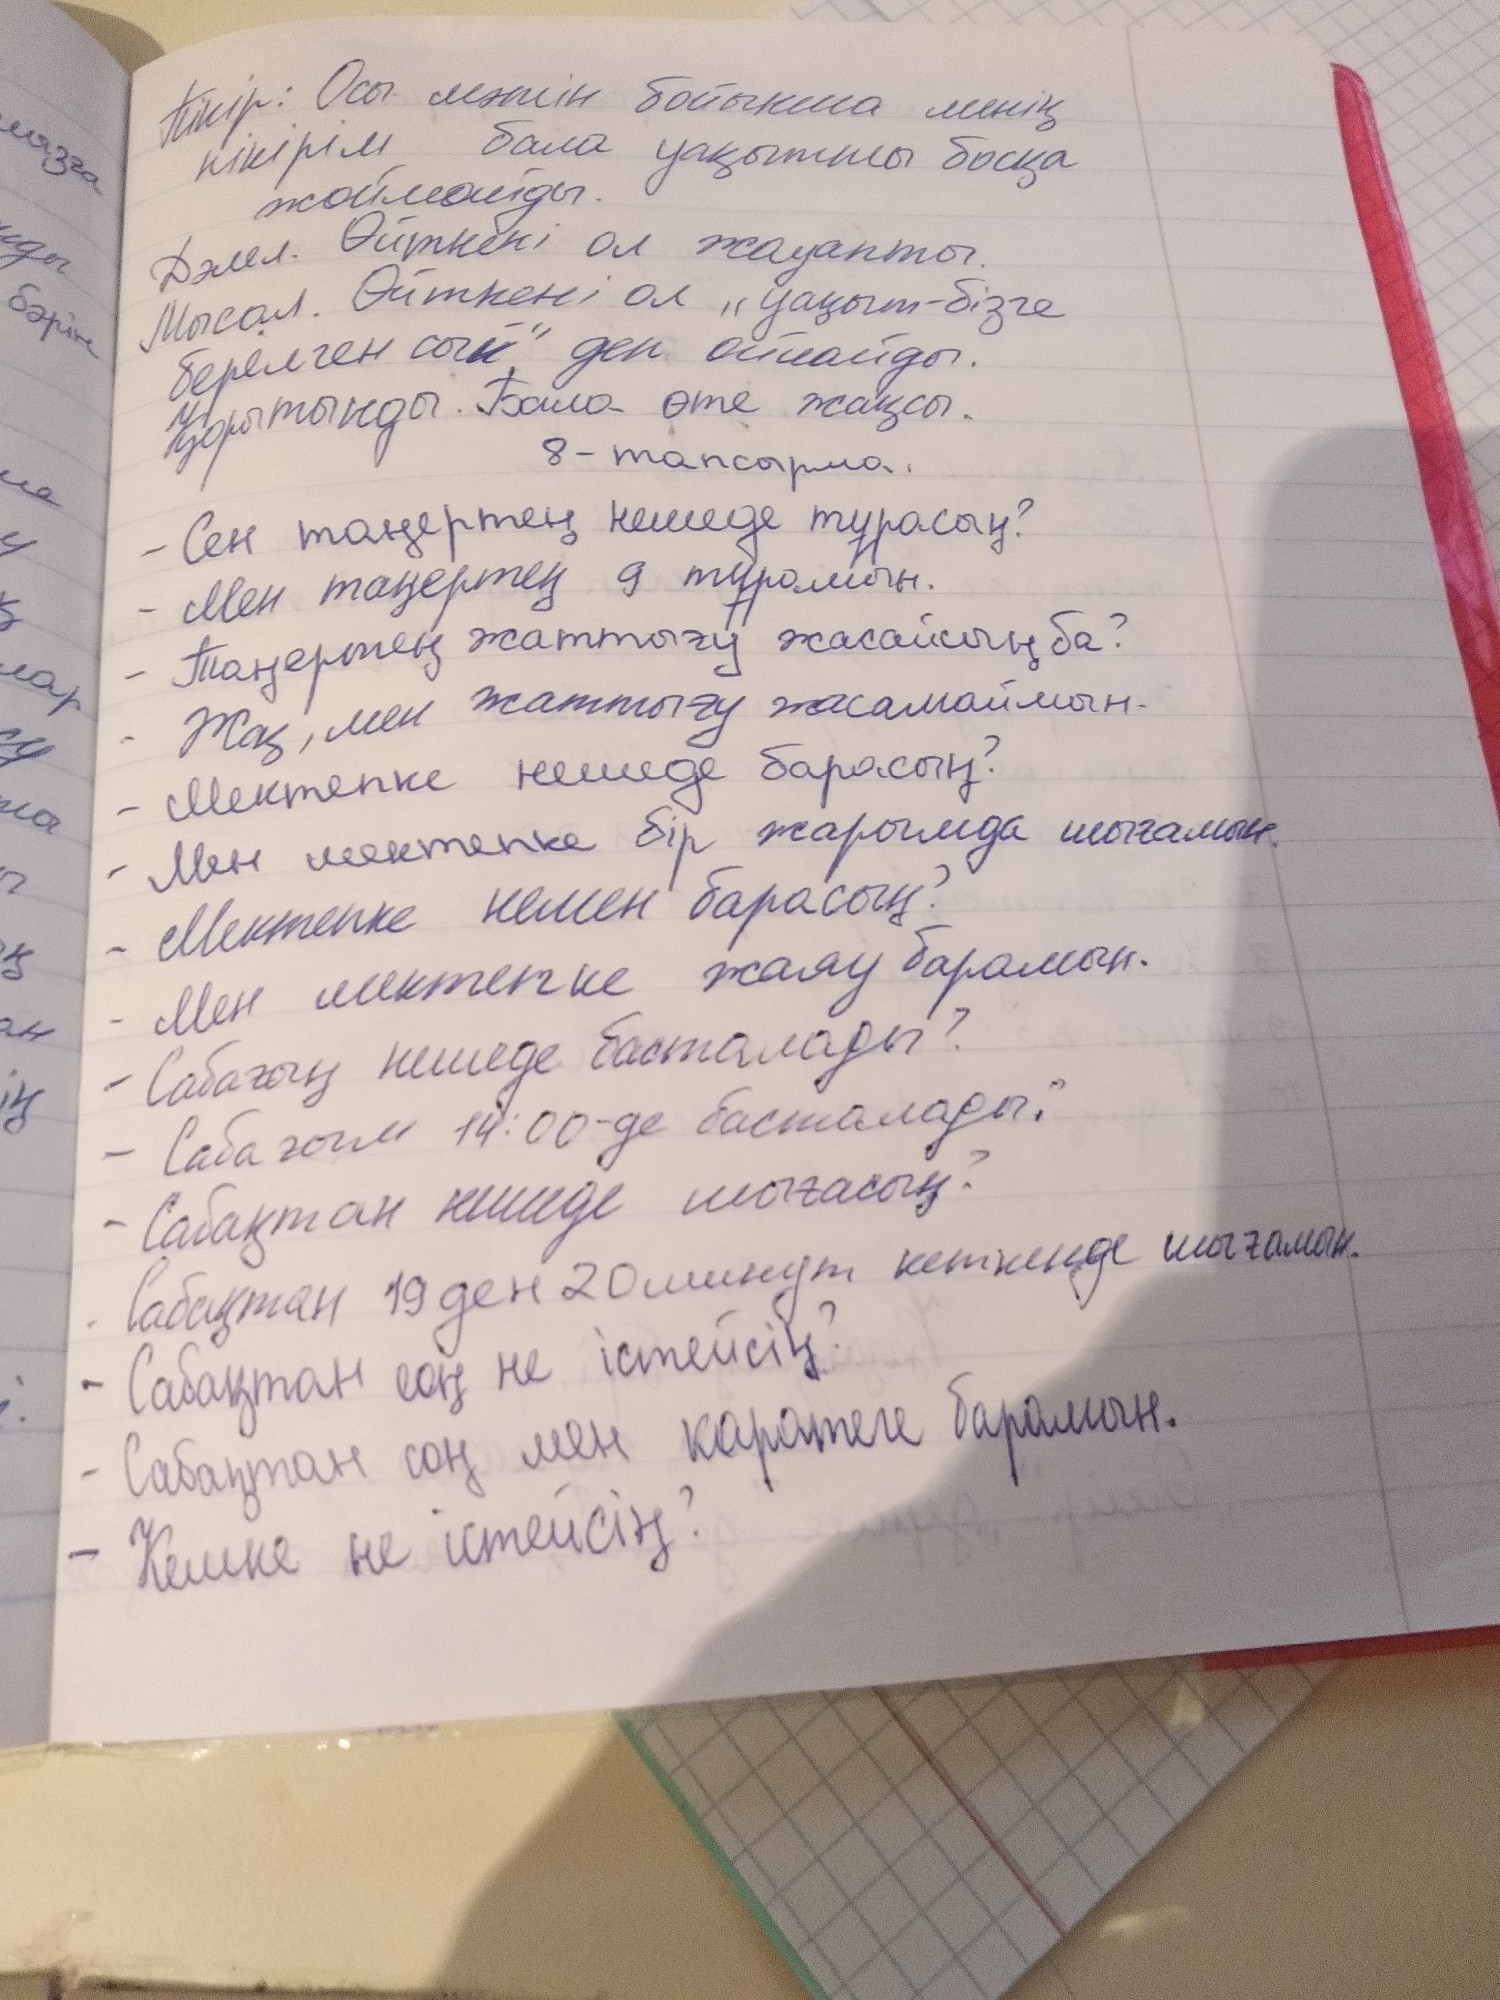 мазға
нды
бәрін
лар
су
ық
ан
ің
Пікір: Осы мәтін бойынша менің
пікірім бала уақытты босқа
жоймайды.
Дәлел. Өйткені ол жауапты.
Мысал. Өйткені ол „уақыт-бізге
берілген сый" деп ойлайды.
Қорытынды. Бала өте жақсы.
8-тапсырма.
- Сен таңертең нешеде тұрасың?
- Мен таңертең 9 тұрамын.
- Таңертең жаттығу жасайсың ба?
- Жақ, мен жаттығу жасамаймын.
- Мектепке нешеде барасың?
- Мен мектепке бір жарымда шығамын.
- Мектепке немен барасың?
- Мен мектепке жаяу барамын.
- Сабағың нешеде басталады?
- Сабағым 14:00-де басталады.
- Сабақтан нешеде шығасың?
- Сабақтан 19 ден 20 минут кеткенде шығамын.
- Сабақтан соң не істейсің?
- Сабақтан соң мен каратеге барамын.
- Кешке не істейсің?